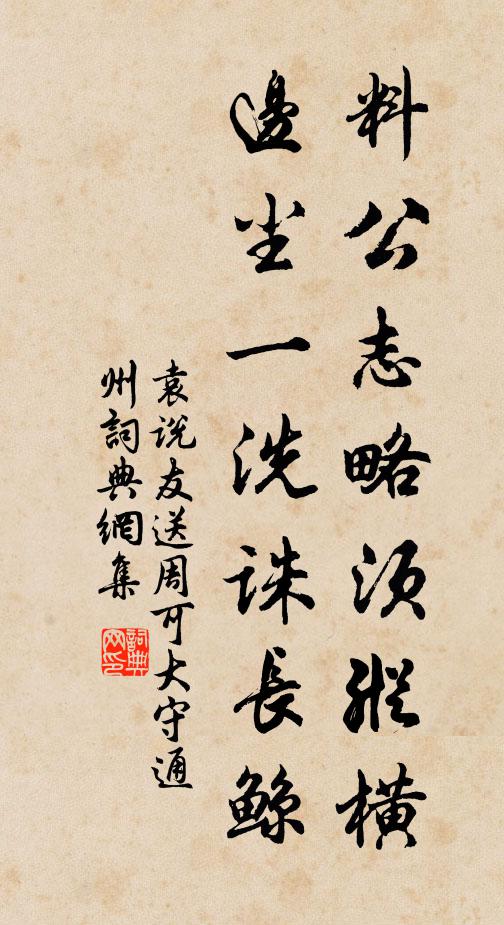 料公志略須縱橫
邊尘一洗誅長鲸
袁说友送周可大守通
州詞典網集
詞典
网印